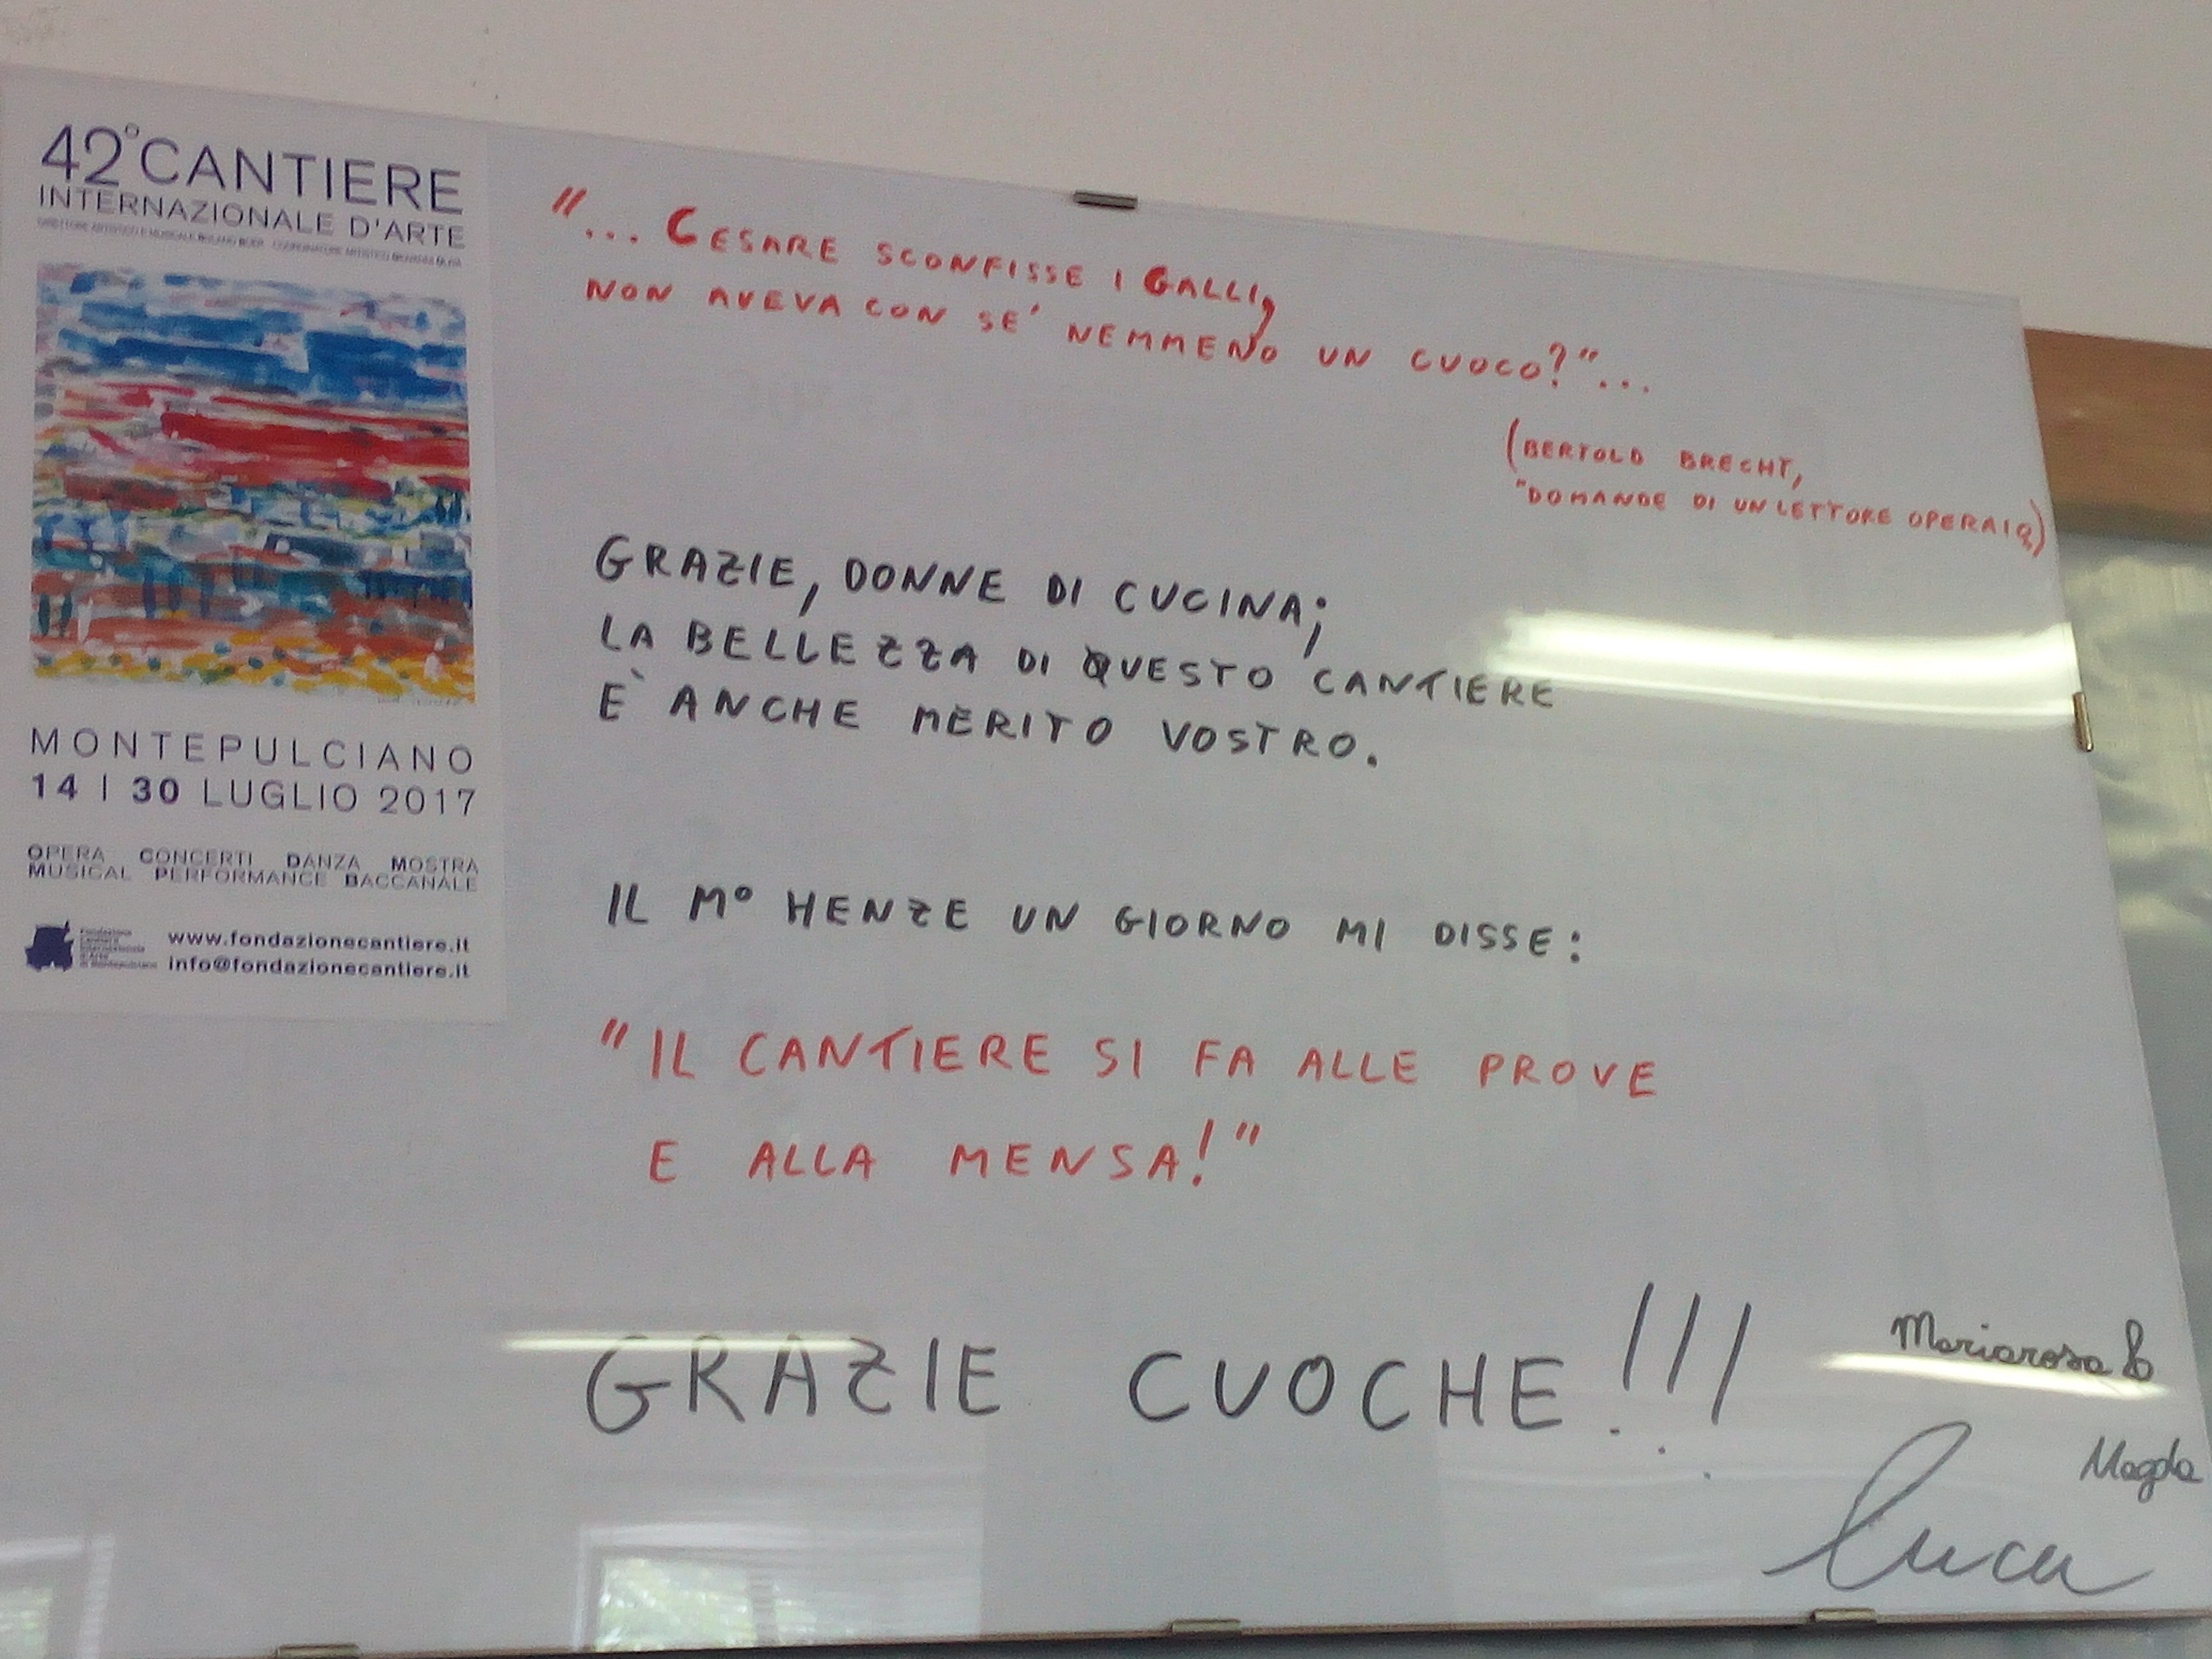 42° CANTIERE
INTERNAZIONALE D'ARTE
MONTEPULCIANO
14 | 30 LUGLIO 2017
OPERA CONCERTI DANZA MOSTRA
MUSICAL PERFORMANCE BACCANALE
www.fondazionecantiere.it
info@fondazionecantiere.it
"... CESARE SCONFISSE I GALLI,
NON AVEVA CON SE' NEMMENO UN CUOCO?"...
(BERTOLD BRECHT,
"DOMANDE DI UN LETTORE OPERAIO)
GRAZIE, DONNE DI CUCINA;
LA BELLEZZA DI QUESTO CANTIERE
E` ANCHE MERITO VOSTRO.
IL M° HENZE UN GIORNO MI DISSE:
"IL CANTIERE SI FA ALLE PROVE
E ALLA MENSA!"
GRAZIE CUOCHE!!!
Mariarosa
Magda
Luca